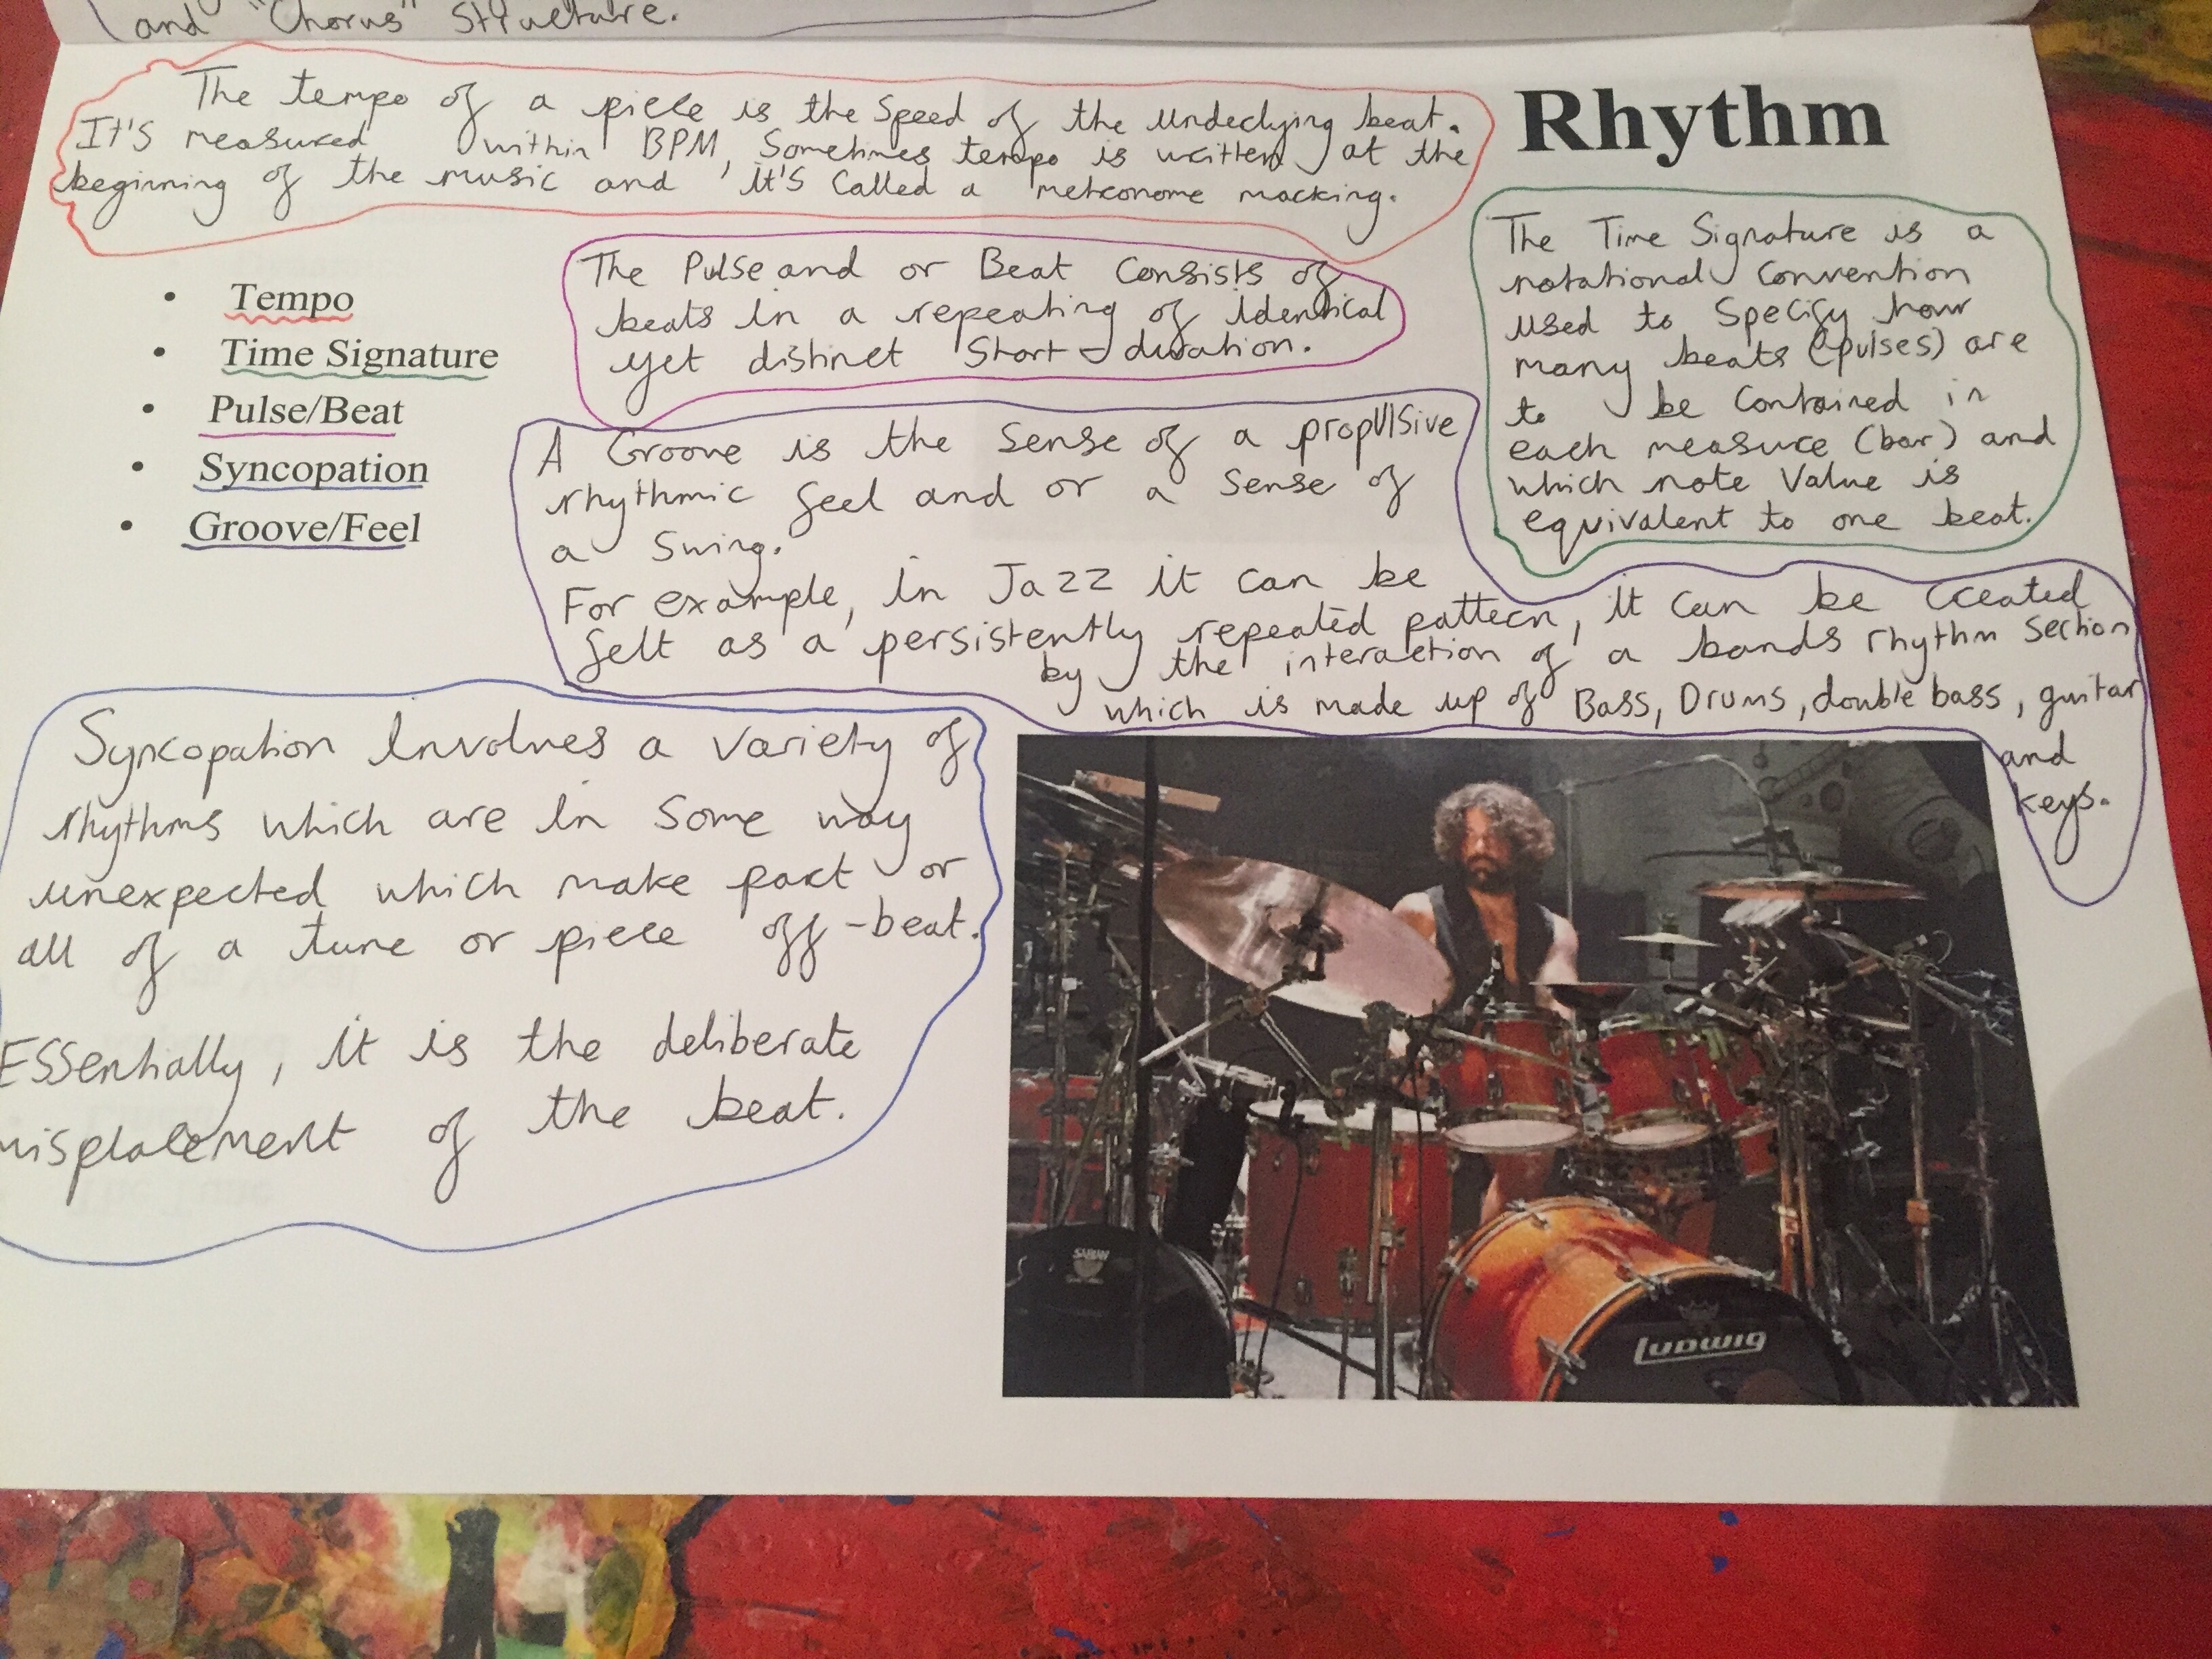 and "Chorus" Structure.
Rhythm
The tempo of a piece is the Speed of the underlying beat.
It's measured within BPM, Sometimes tempo is written at the
beginning of the music and it's Called a metronome marking.
• Tempo
• Time Signature
• Pulse/Beat
• Syncopation
• Groove/Feel
The Pulse and or Beat Consists of
beats in a repeating of identical
yet distinct Short-duration.
The Time Signature is a
notational Convention
used to Specify how
many beats (pulses) are
to be Contained in
each measure (bar) and
which note Value is
equivalent to one beat.
A Groove is the Sense of a propulsive
rhythmic feel and or a Sense of
a Swing.
For example, in Jazz it can be
felt as a persistently repeated pattern, it can be Created
by the interaction of a bands rhythm Section
which is made up of Bass, Drums, double bass, guitar
and
keys.
Syncopation Involves a Variety of
rhythms which are in Some way
unexpected which make part or
all of a tune or piece off-beat.
Essentially, it is the deliberate
misplacement of the beat.
SABIAN
Ludwig